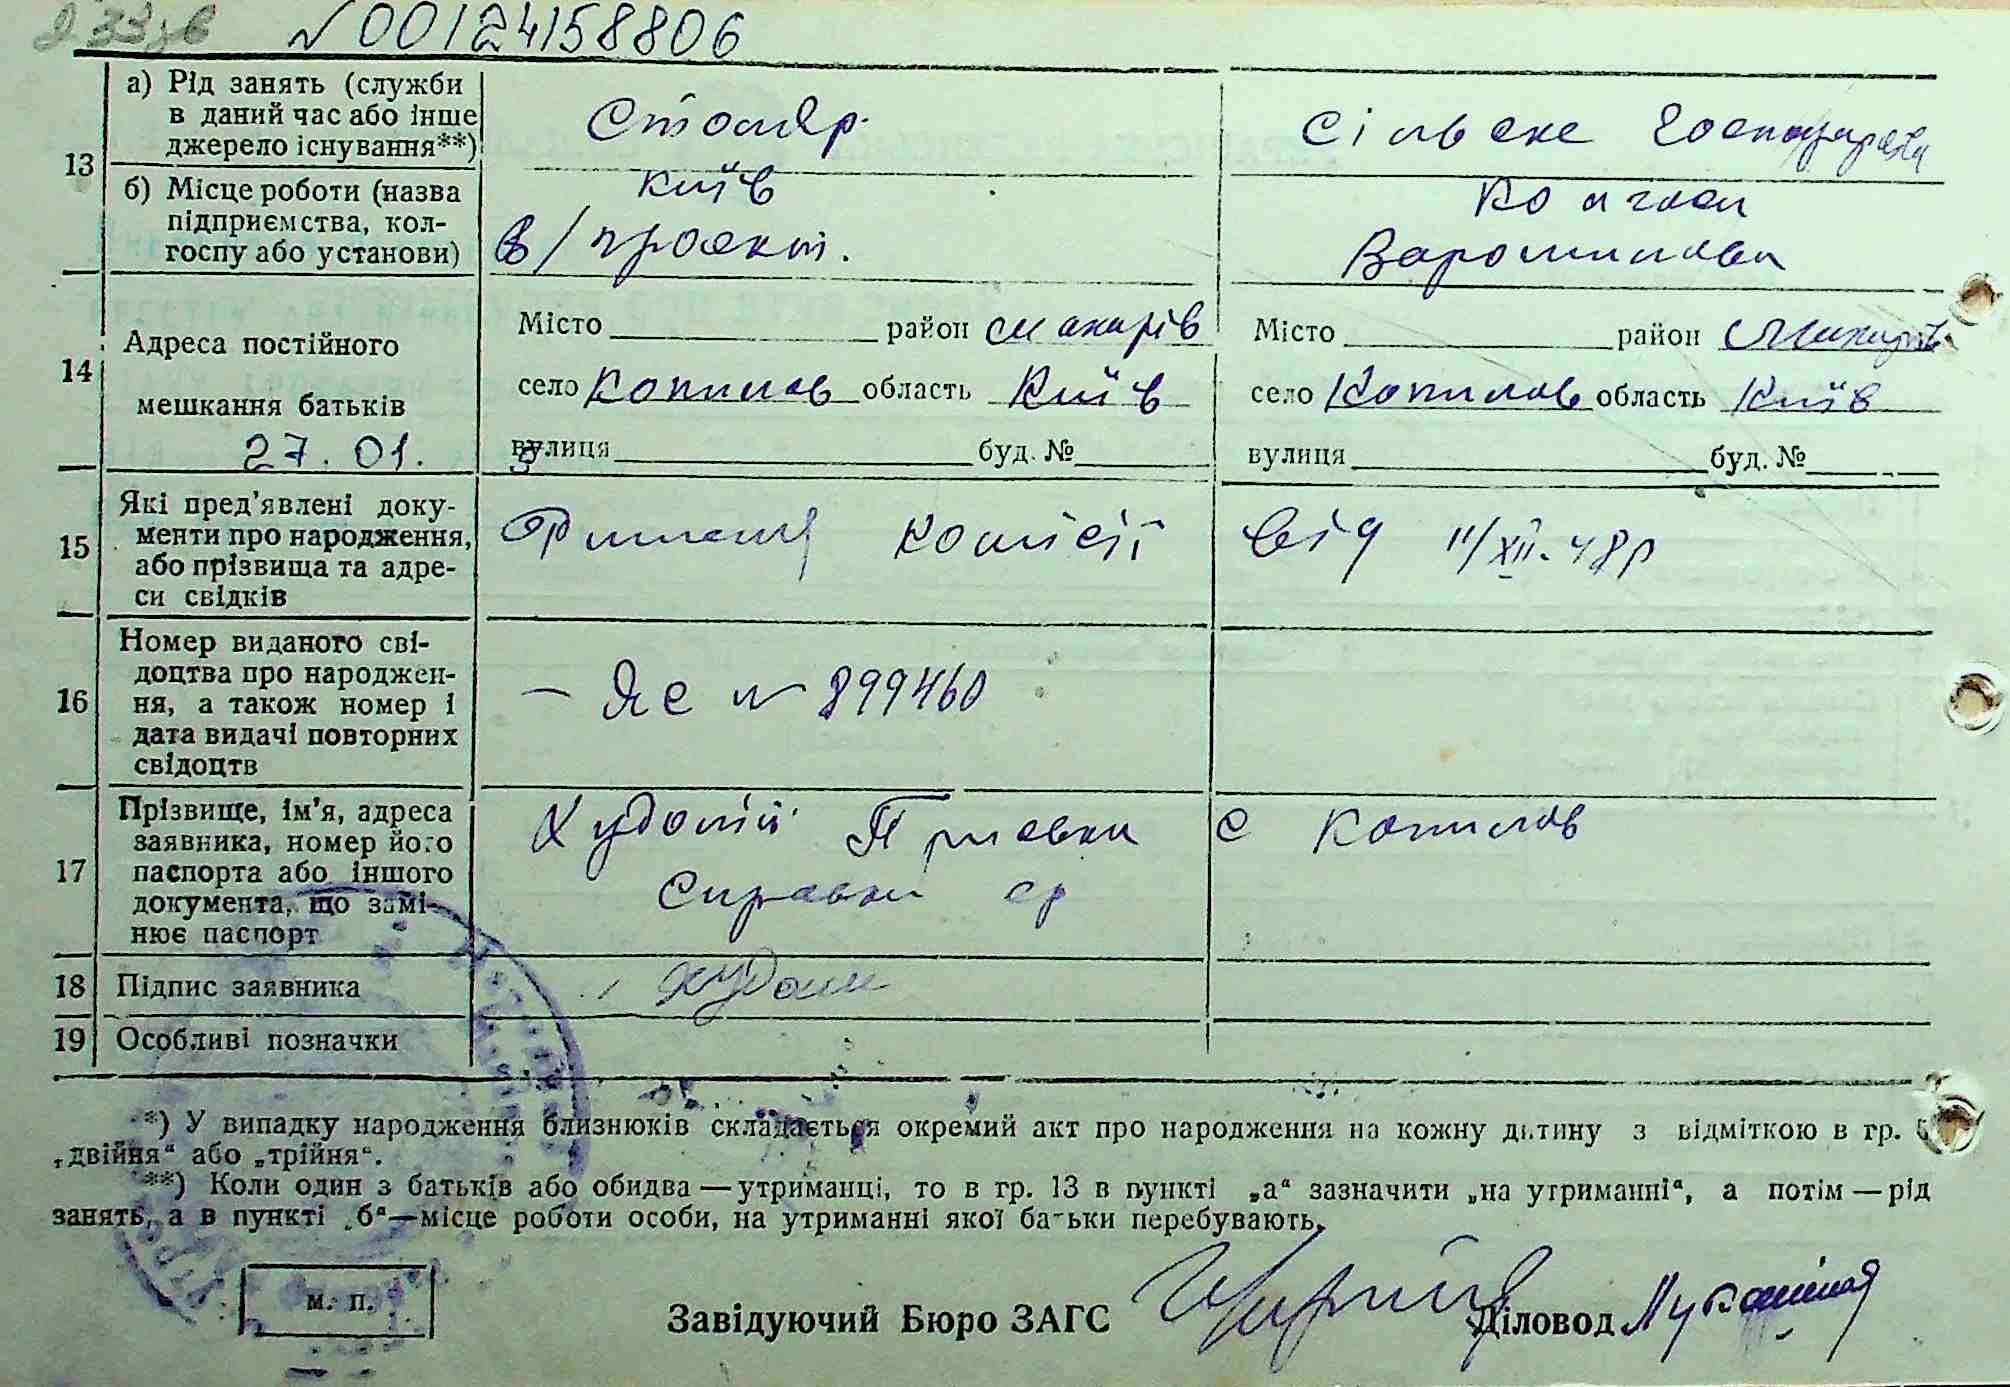 № 00124158806
13
а) Рід занять (служби
в даний час або інше
джерело існування**)
Столяр.
Сільське господарство
б) Місце роботи (назва
підприємства, кол-
госпу або установи)
Київ
в/проект.
Колгосп
Ворошилова
14
Адреса постійного
мешкання батьків
27. 01.
Місто район Макарів
село Копилов область Київ
вулиця буд. №
Місто район Макарів
село Копилов область Київ
вулиця буд. №
15
Які пред'явлені доку-
менти про народження,
або прізвища та адре-
си свідків
Рішення комісії від 11/XII-48р
16
Номер виданого сві-
доцтва про народжен-
ня, а також номер і
дата видачі повторних
свідоцтв
– ЯС № 899460
17
Прізвище, ім'я, адреса
заявника, номер його
паспорта або іншого
документа, що замі-
нює паспорт
Худолій с Копилов
Справка ср
18
Підпис заявника
Худолі
19
Особливі позначки
*) У випадку народження близнюків складається окремий акт про народження на кожну дитину з відміткою в гр. 5
„двійня“ або „трійня“.
**) Коли один з батьків або обидва — утриманці, то в гр. 13 в пункті „а“ зазначити „на утриманні“, а потім — рід
занять, а в пункті „б“ — місце роботи особи, на утриманні якої батьки перебувають.
М. П.
Завідуючий Бюро ЗАГС
Діловод